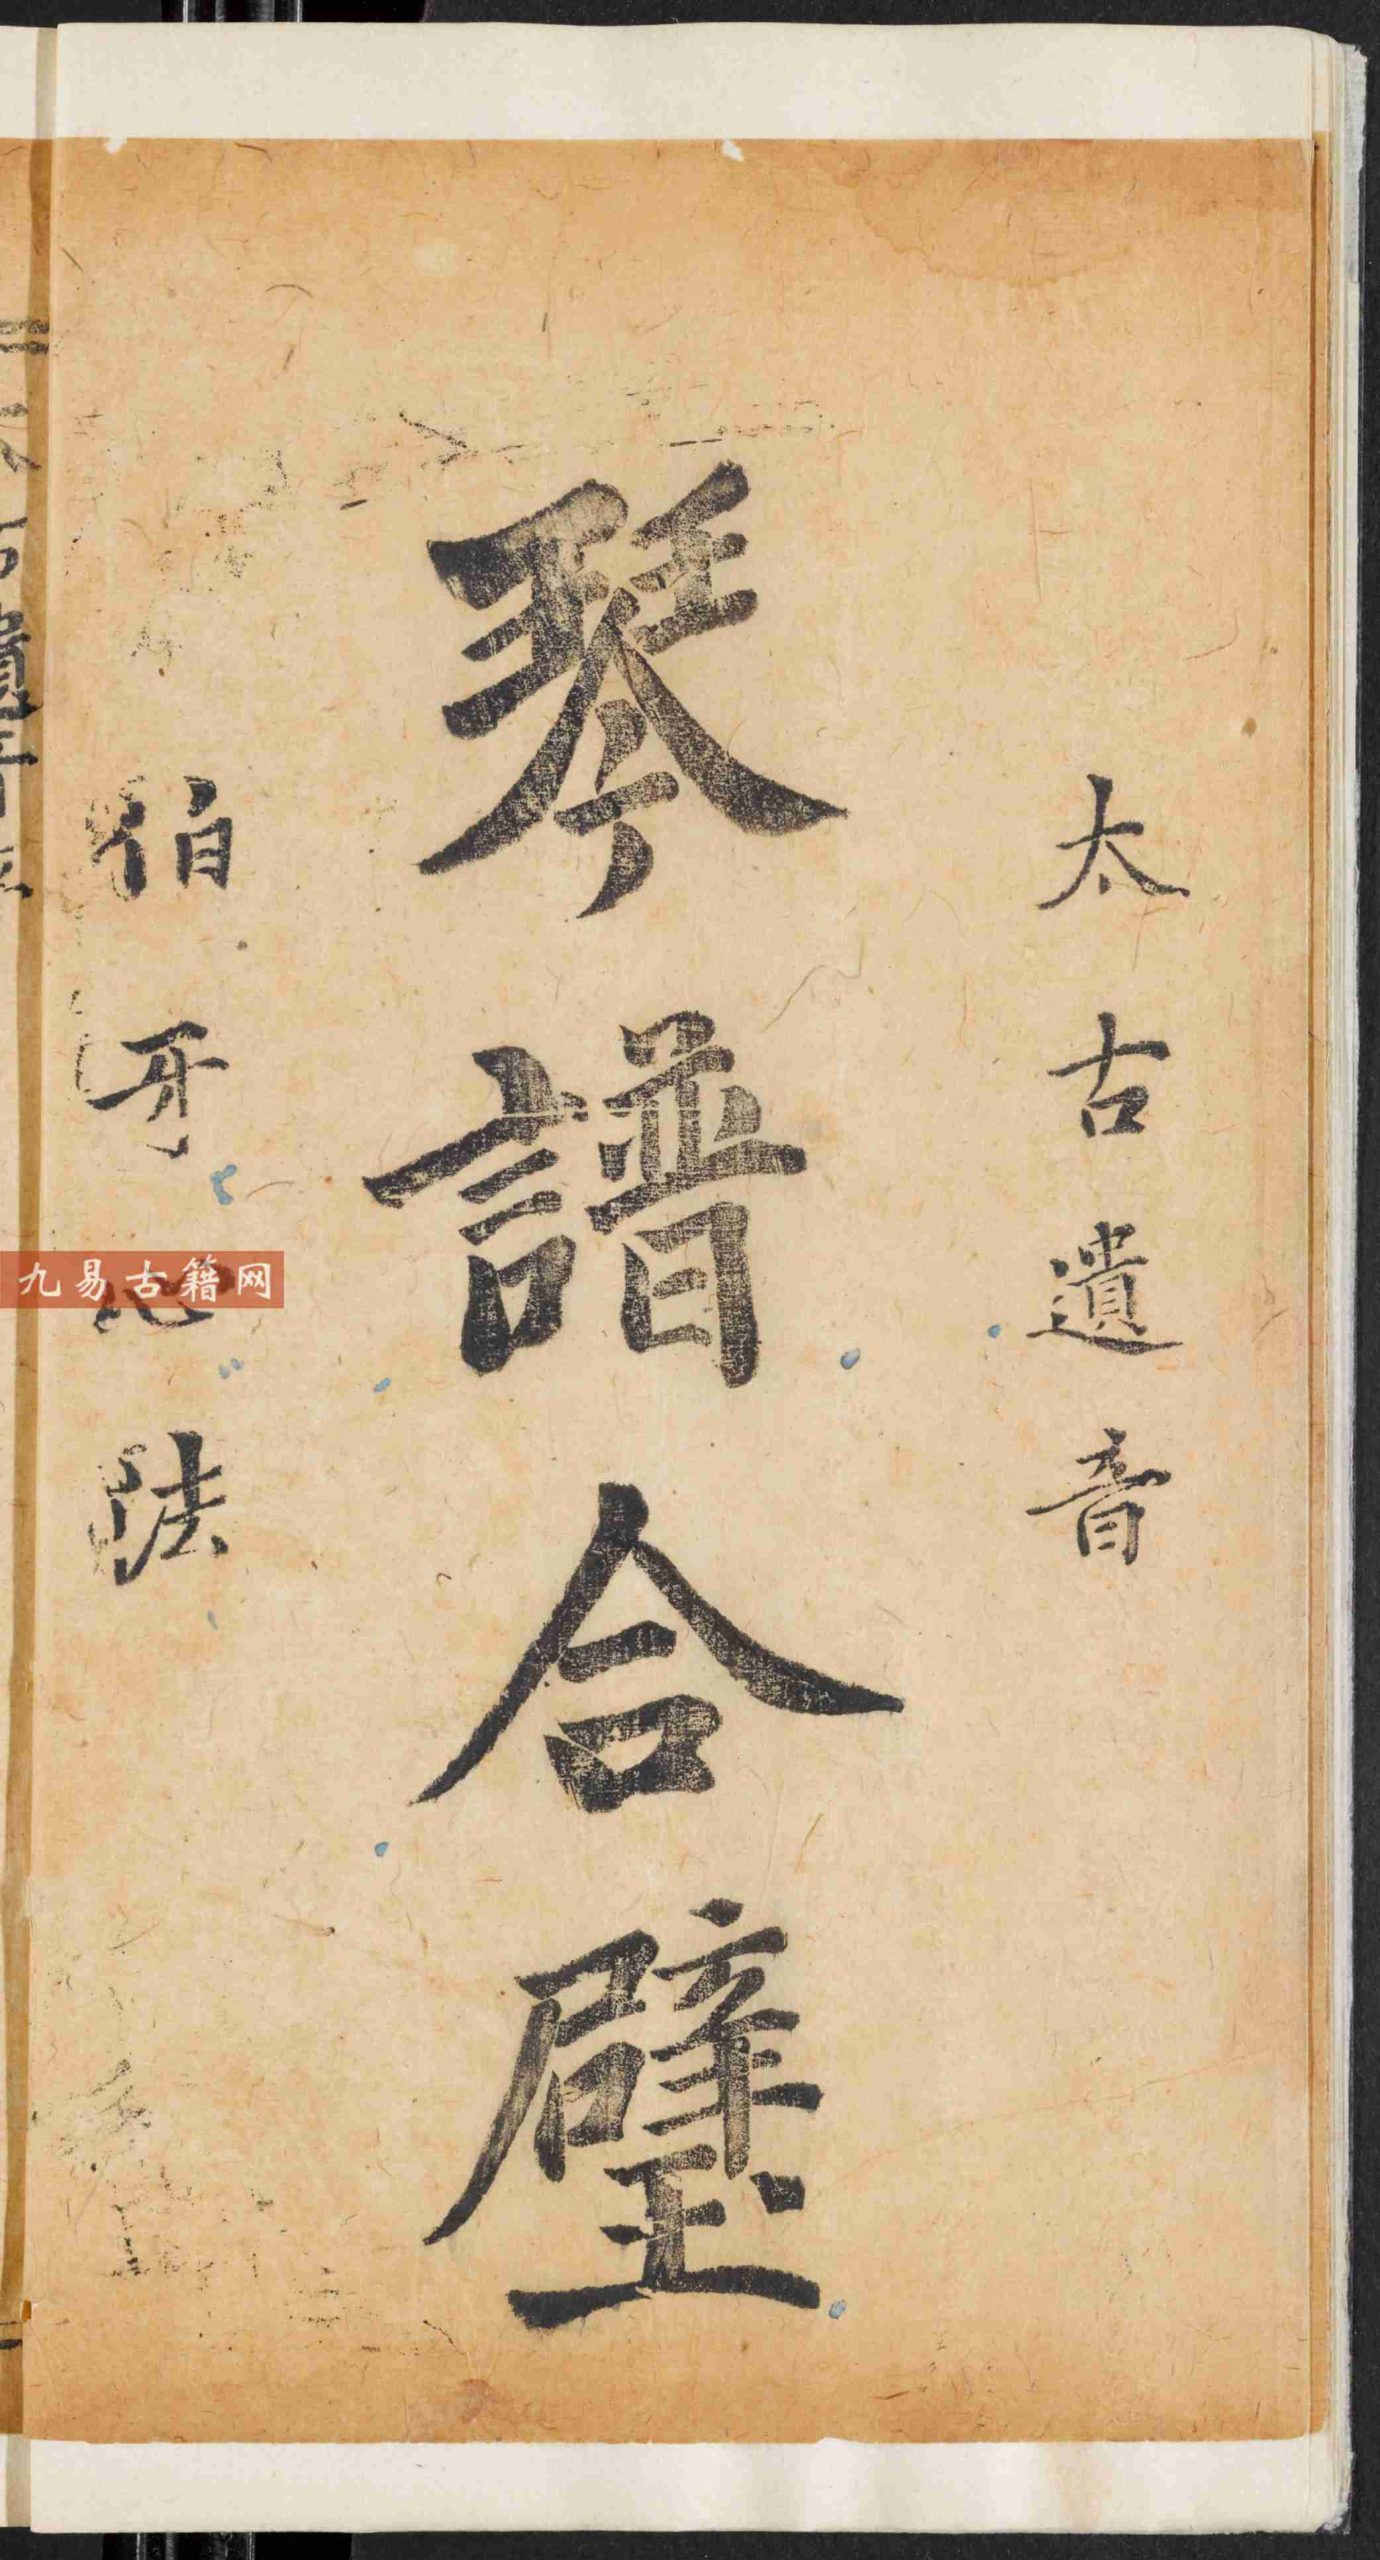 太古遺音
琴譜合璧
伯牙心法
九易古籍网